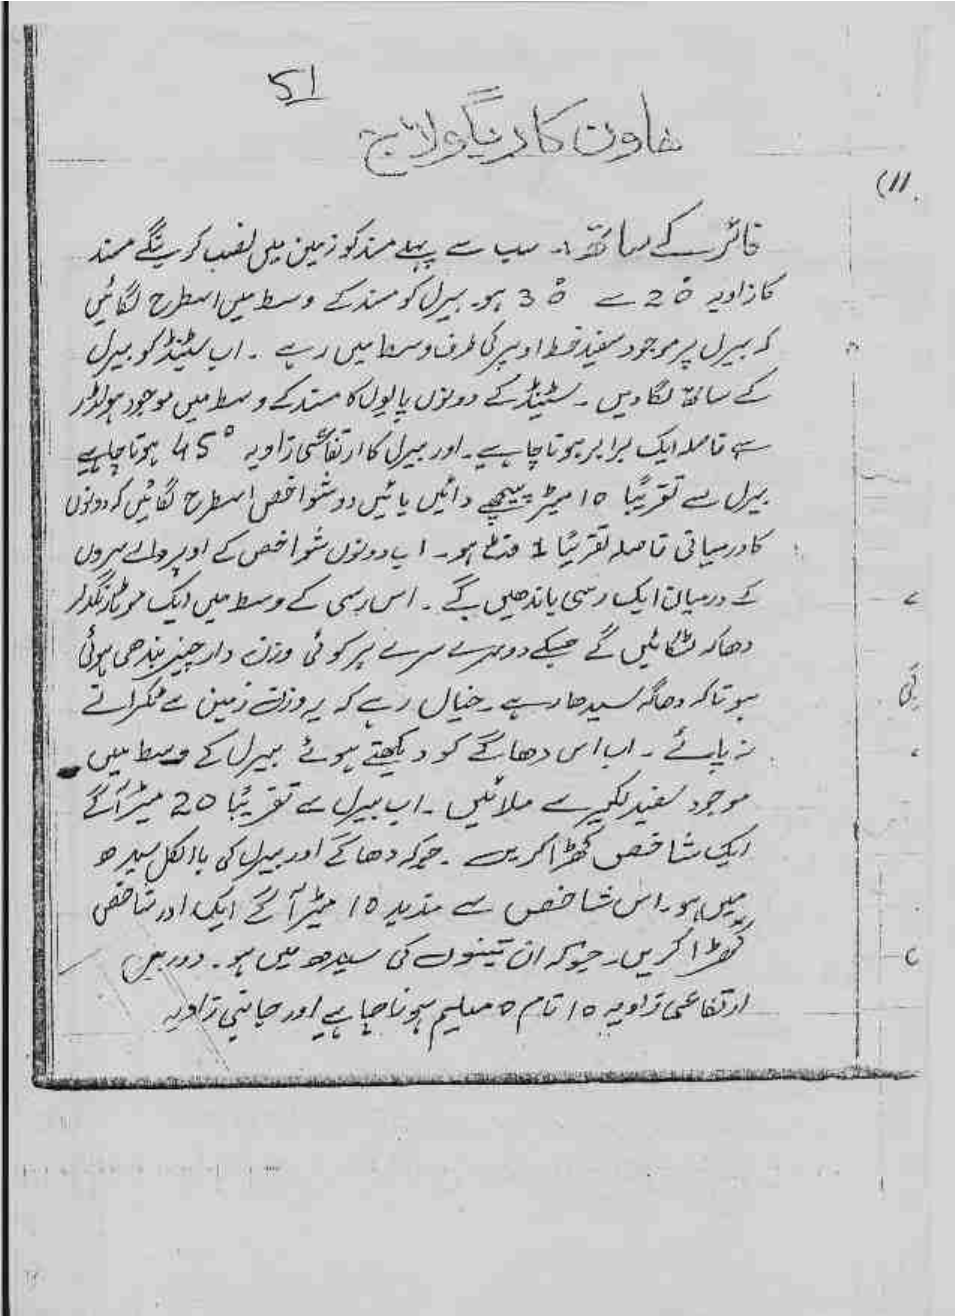 51
ھاون کا ریگولاج
(11
فائر کے ساتھ :۔ سب سے پہلے مسند کو زمین میں نصب کرینگے مسند
کا زاویہ 20° سے 30° ہو۔ بیرل کو مسند کے وسط میں اسطرح لگائیں
کہ بیرل پر موجود سفید خط اوپر کی طرف وسط میں رہے ۔ اب سٹینڈ کو بیرل
کے ساتھ لگا دیں ۔ سٹینڈ کے دونوں پایوں کا مسند کے وسط میں موجود ہولڈر
سے فاصلہ ایک برابر ہونا چاہیے ۔ اور بیرل کا ارتفاعی زاویہ 45° ہونا چاہیے
بیرل سے تقریبًا 10 میٹر پیچھے دائیں بائیں دو شواخص اسطرح لگائیں کہ دونوں
کا درمیانی فاصلہ تقریبًا 1 فٹ ہو۔ اب دونوں شواخص کے اوپر والے سروں
کے درمیان ایک رسی باندھیں گے ۔ اس رسی کے وسط میں ایک موٹا رنگدار
دھاگہ لٹکائیں گے جسکے دوسرے سرے پر کوئی وزن دار چیز بندھی ہوئی
ہو تاکہ دھاگہ سیدھا رہے ۔ خیال رہے کہ یہ وزن زمین سے ٹکرانے
نہ پائے ۔ اب اس دھاگے کو دیکھتے ہوئے بیرل کے وسط میں
موجود سفید لکیر سے ملائیں ۔ اب بیرل سے تقریبًا 20 میٹر آگے
ایک شاخص کھڑا کریں ۔ جو کہ دھاگے اور بیرل کی بالکل سیدھ
میں ہو ۔ اس شاخص سے مذید 10 میٹر آگے ایک اور شاخص
کھڑا کریں ۔ جو کہ ان تینوں کی سیدھ میں ہو ۔ دوربین
ارتفاعی زاویہ 10 تام 0 میلیم ہونا چاہیے اور جانبی زاویہ